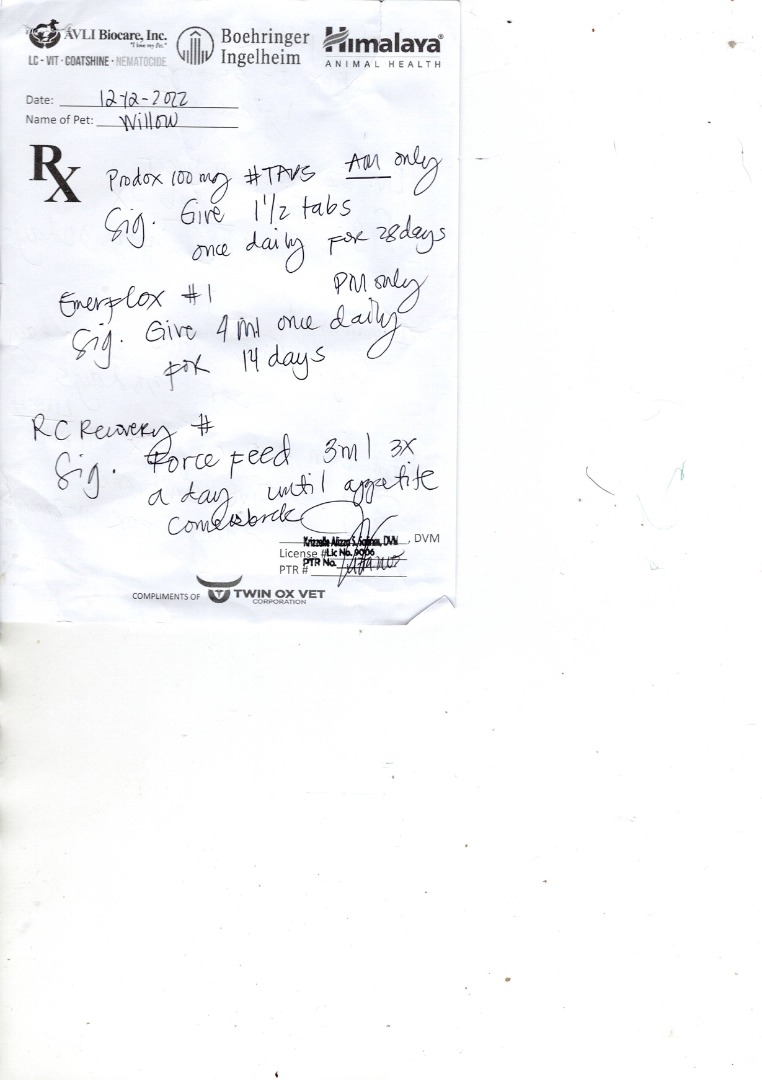 ÁVLI Biocare, Inc.
"I love my Pet."
LC - VIT · COATSHINE · NEMATOCIDE
Boehringer
Ingelheim
Himalaya®
ANIMAL HEALTH
Date: 12-12-2022
Name of Pet: Willow
Rx
Prodox 100 mg #TAVS AM only
Sig. Give 1 1/2 tabs
once daily for 28 days
Enerflox #1 PM only
Sig. Give 4 ml once daily
for 14 days
RC Recovery #
Sig. Force Feed 3ml 3x
a day until appetite
comes back
, DVM
License # Lic No. 9006
PTR No.
PTR #
COMPLIMENTS OF TWIN OX VET
CORPORATION